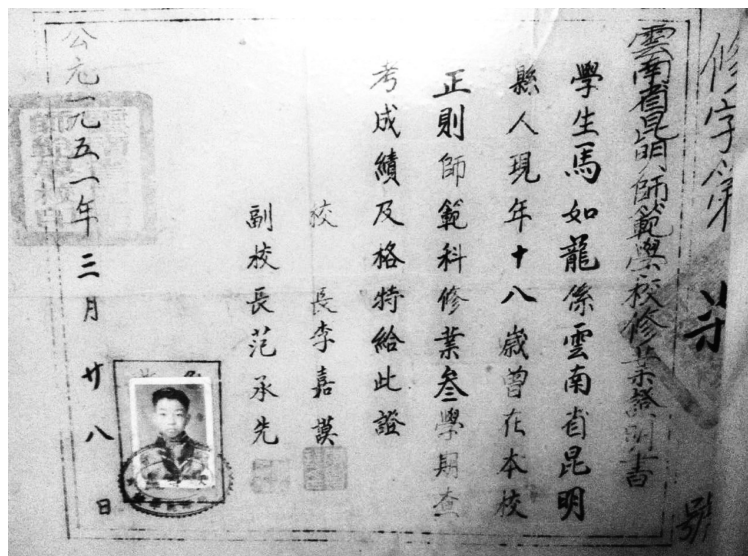 修字第 柒 號
雲南省昆明師範學校修業證明書
學生馬如龍係雲南省昆明
縣人現年十八歲曾在本校
正則師範科修業叁學期查
考成績及格特給此證
校 長李嘉謨
副校長范承先
公元一九五一年三月廿八日